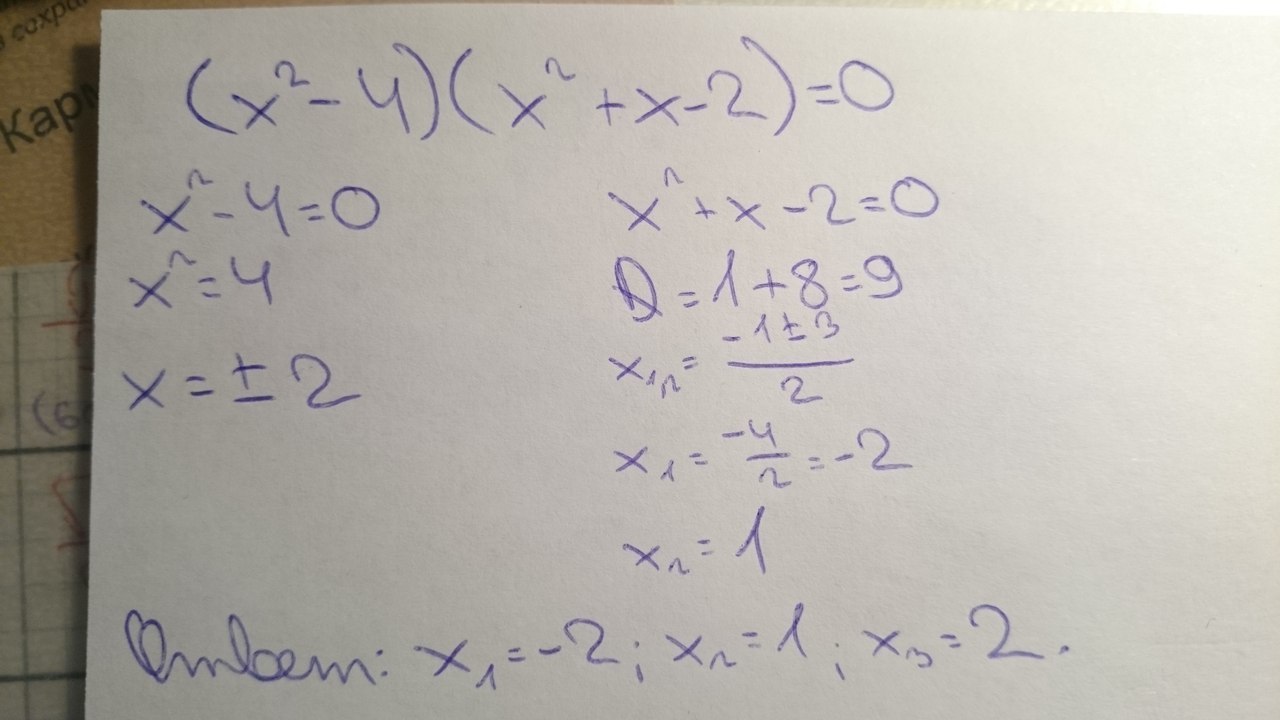 я сохра
Кар
(x² - 4)(x² + x - 2) = 0
x² - 4 = 0
x² = 4
x = ± 2
x² + x - 2 = 0
D = 1 + 8 = 9
x₁,₂ = (-1 ± 3)/2
x₁ = -4/2 = -2
x₂ = 1
Ответ: x₁ = -2; x₂ = 1; x₃ = 2.
(6